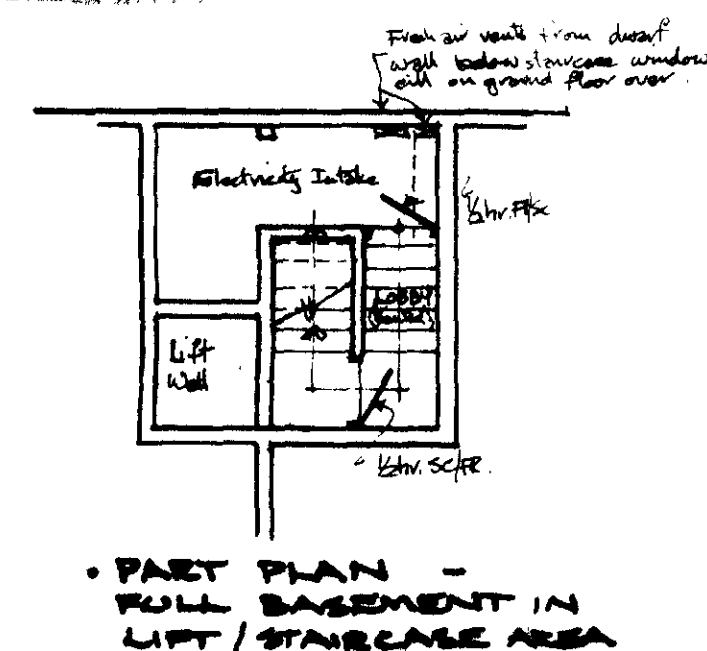 Fresh air vents from dwarf
wall below staircase window
cill on ground floor over.
Electricity Intake
½hr.
LOBBY
(vented)
Lift
Well
½hr. SC/FR.
• PART PLAN -
FULL BASEMENT IN
LIFT / STAIRCASE AREA